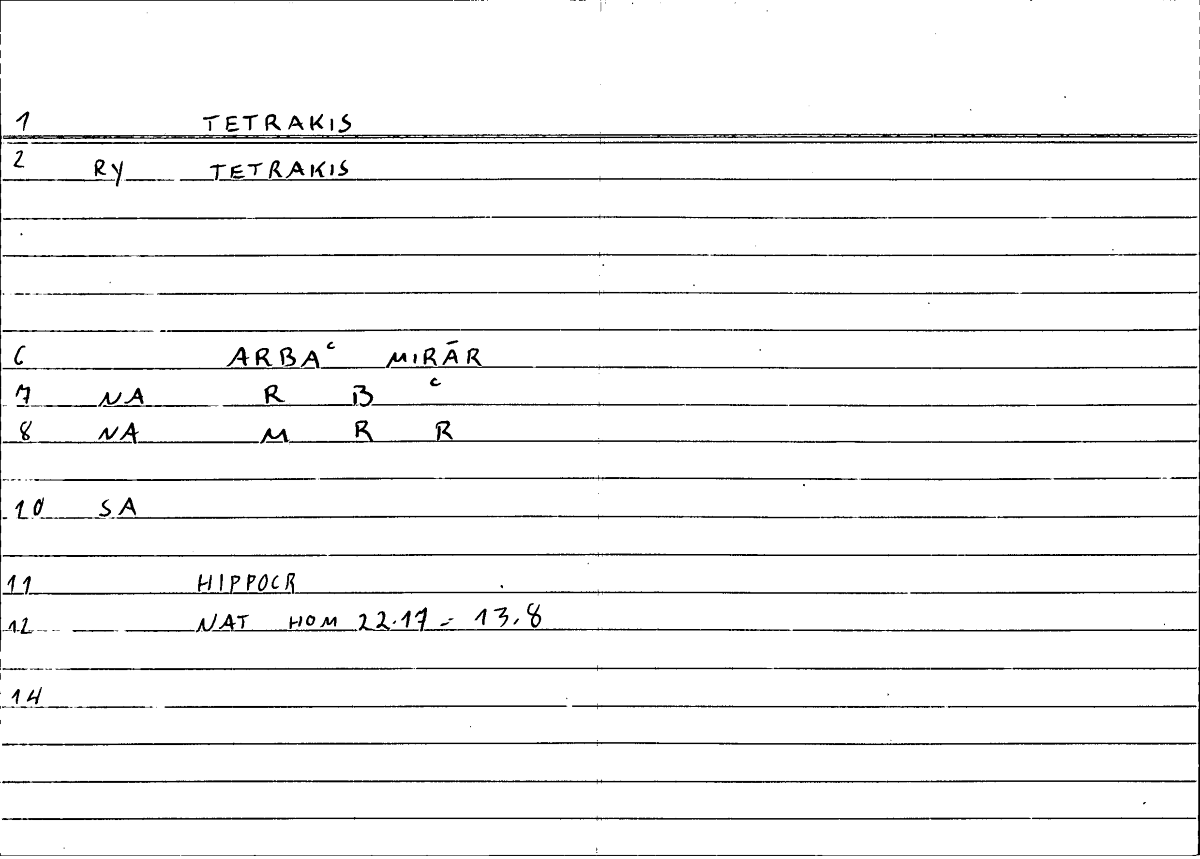 1 TETRAKIS
2 RY TETRAKIS
6 ARBAᶜ MIRĀR
7 NA R B ᶜ
8 NA M R R
10 SA
11 HIPPOCR
12 NAT HOM 22.17 - 13.8
14